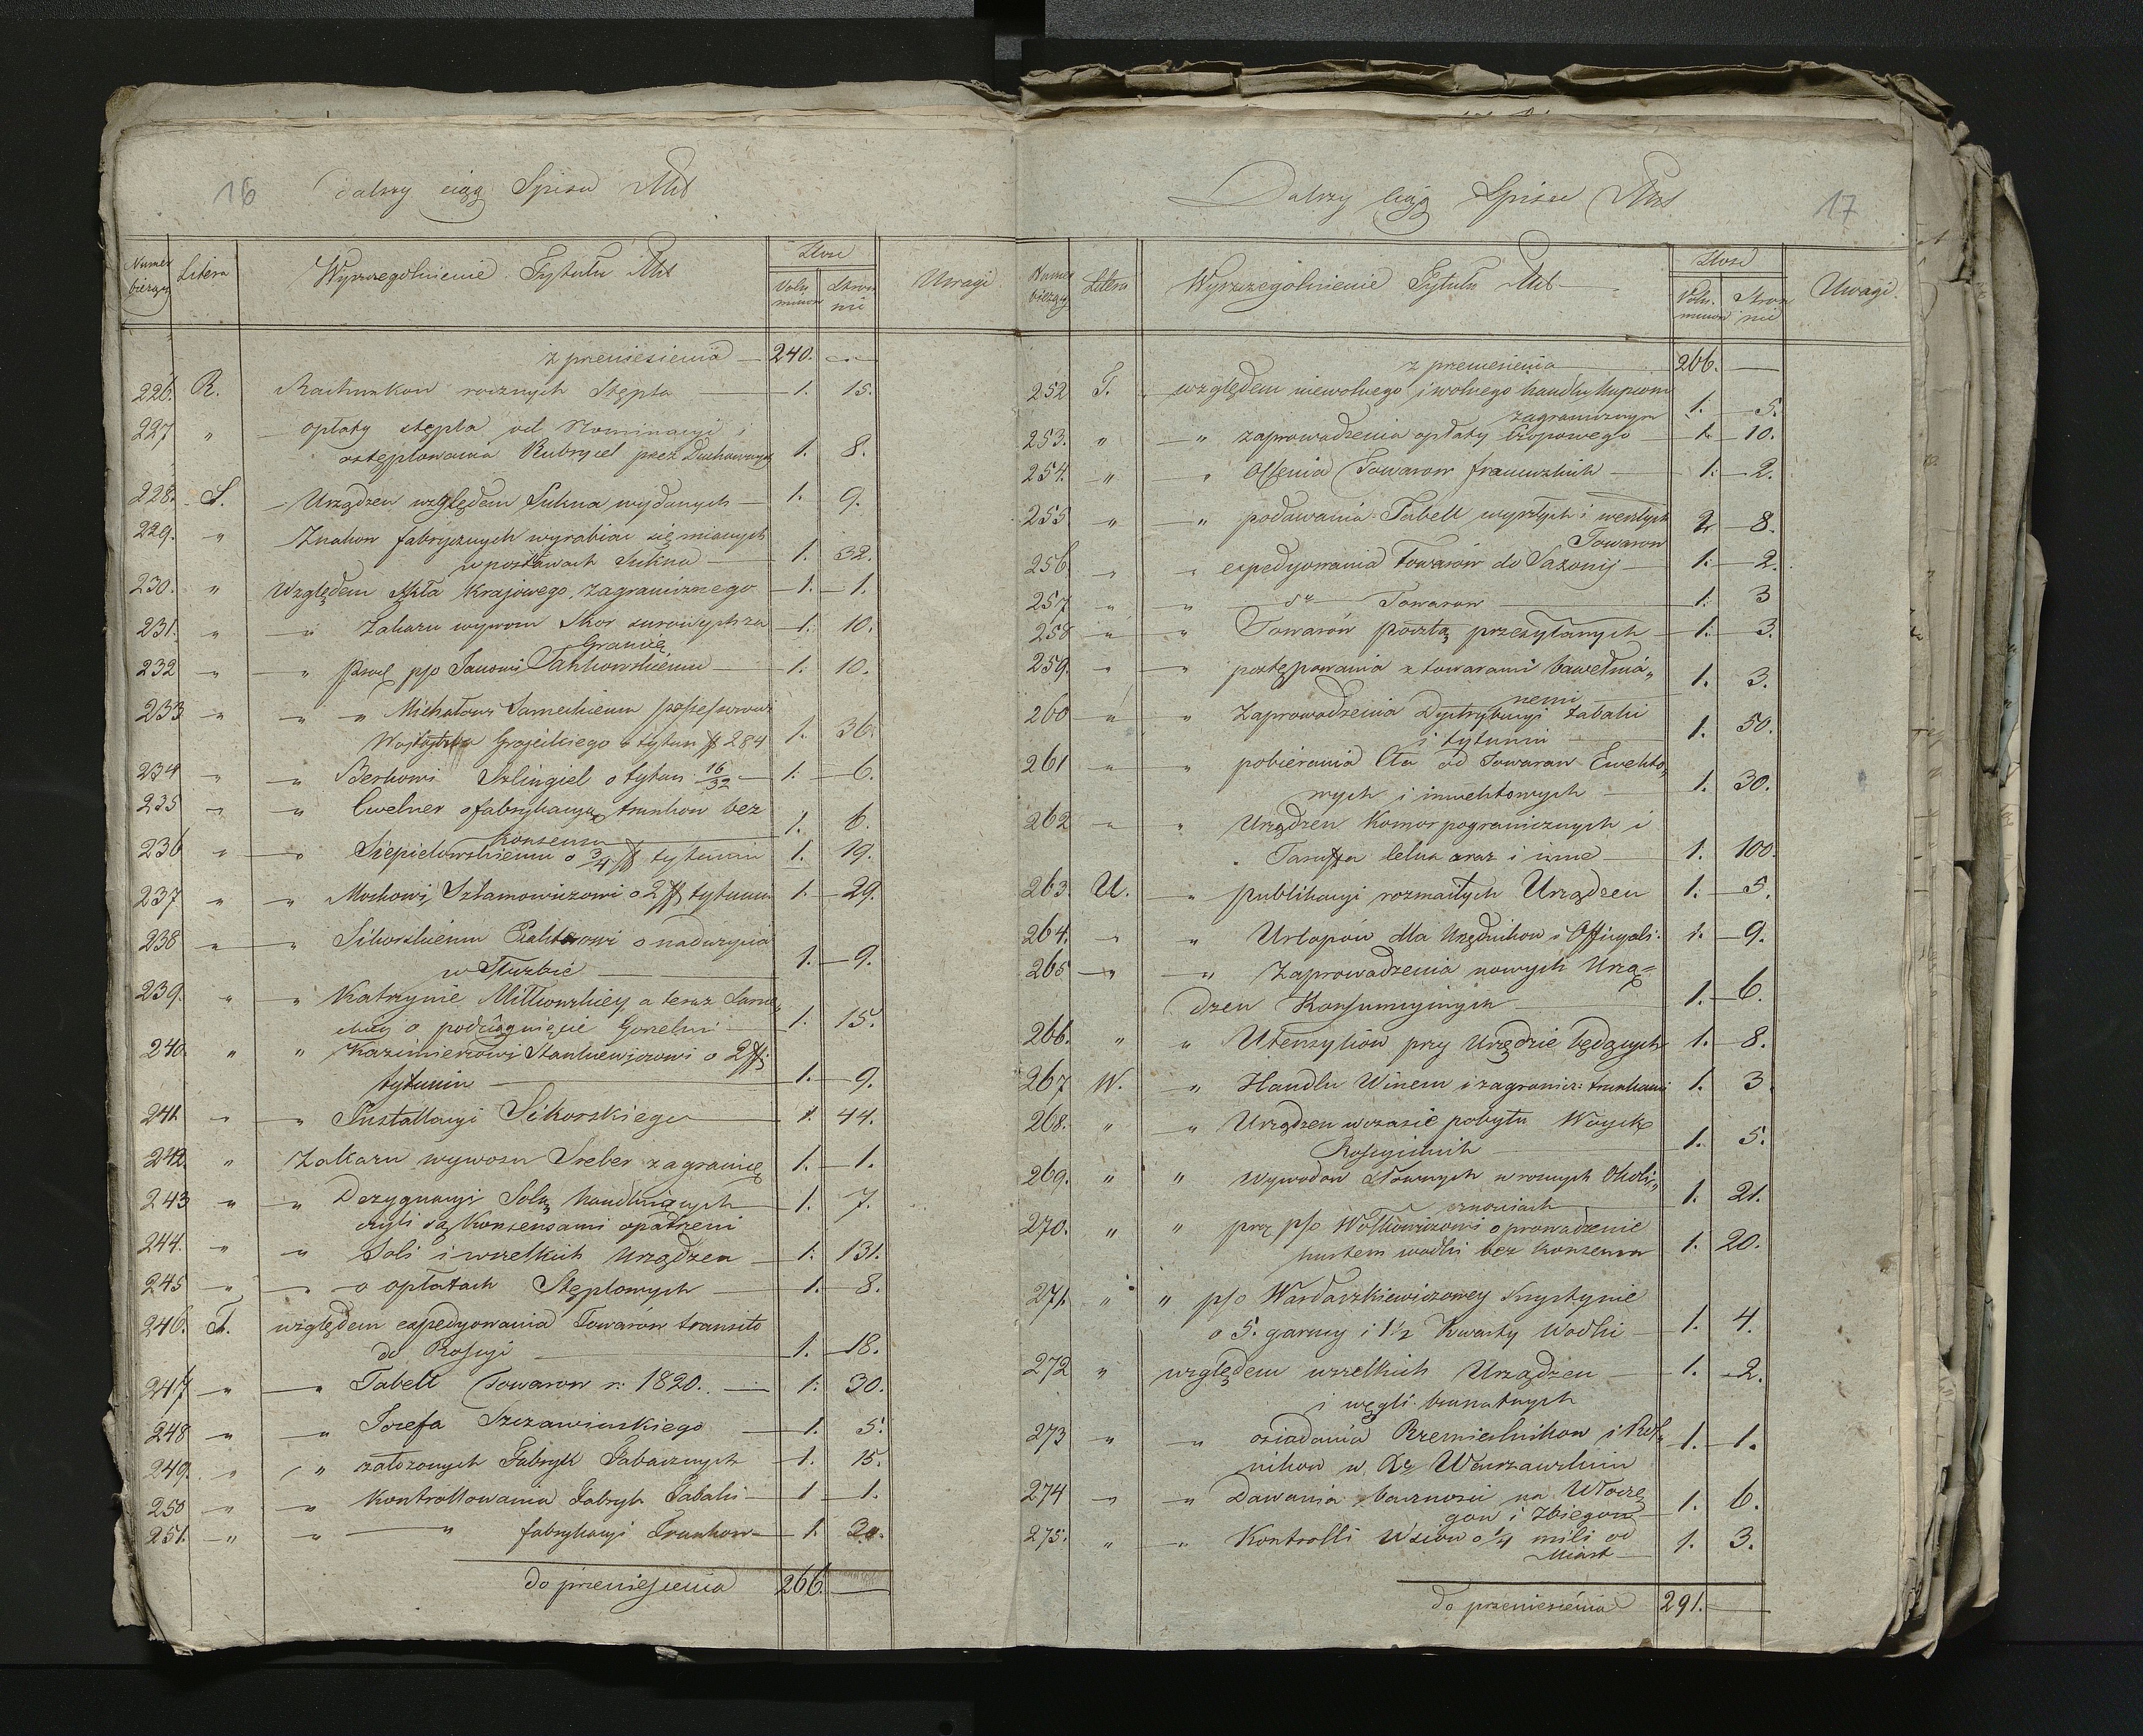 16
Dalszy ciąg Spisu Akt
Numer bierzący
Litera
Wyszczegolnienie Tytułu Akt
Ilosc
Volu minow
Stron nic
Uwagi
z przeniesienia — 240. —
226. R. Rachunkow rocznych Stępla — 1. 15.
227 " — opłaty stępla od Nominacyi i
ostęplowania Rubrycel przez Duchownych 1. 8.
228. S. — Urządzen względem Sukna wydanych — 1. 9.
229. " Znakow fabrycznych wyrabiac się maiących
w postawach Sukna — 1. 32.
230. " Względem Szkła Krajowego, zagranicznego — 1. — 1.
231. " — " Zakazu wywozu Skor surowych za — 1. 10.
Granicę
232 " — " proces p/o Janowi — 1. 10.
233 " " " Michałowi Sameckiemu possessorowi
Grojeckiego o tytun ℔ 284 1. 36.
234 " " Berkowi Szlingiel o tytun 16/32 — 1. — 6.
235 " " Cwelner o fabrykacyą trunkow bez
Konsensu 1. 6.
236 " — " o 3/4 ℔ tytuniu 1. 19.
237 " " Moskowi Szlamowiczowi o 2 ℔ tytuniu 1. — 29.
238 " " Sikorskiemu o nadużycia
w Służbie — 1. — 9.
239. " " Katrzynie Mitkowskiey, a teraz
o podciągnięcie Gorzelni — 1. 15.
240. " " Kazimierzowi Stankiewiczowi o 2 ℔
tytuniu — 1. — 9.
241. " — " Installacyi Sikorskiego — 1. 44.
242. " Zakazu wywozu Sreber zagranicę 1. — 1.
243 " " Dezygnacyi Solą handluiących — 1. 7.
czyli są Konsensami opatrzeni
244. " " Soli i wszelkich urządzen — 1. 131.
245 " — " — o opłatach Stęplowych — 1. — 8.
246. T. względem expedyowania Towarów transito
do Rossyi — 1. — 18.
247 — " — " Tabell Towarow r. 1820. — 1. 30.
248 — " — " Jozefa Szczawinskiego — 1. 5.
249. " — " załozonych Fabryk Tabacznych — 1. 15.
250 " — " Kontrollowania Fabryk Tabaki — 1 — 1.
251. — " " — " fabrykacyi Trunkow — 1. 30.
do przeniesienia 266. —
17
Dalszy ciąg Spisu Akt
Numer bieżący
Litera
Wyszczegolnienie Tytułu Akt —
Ilosc
Volu. minow
Stron nic
Uwagi.
z przeniesienia 266. —
252 T. względem niewolnego i wolnego handlu kupcom
zagranicznym 1. — 5.
253. " — " zaprowadzenia opłaty Czopowego — 1. — 10.
254. " — " Clenia Towarow francuzkich — 1. — 2.
255 " — " podawania Tabell wyszłych i weszłych 2 — 8.
Towarow
256. " " expedyowania Towarów do Saxonij — 1. — 2.
257 " " — do — Towarow — 1. 3
258 " " Towarów pocztą przesyłanych — 1. — 3.
259. " " postępowania z towarami bawełnia„
nemi — 1. 3.
260 " " Zaprowadzenia Dystrybucyi tabaki
i tytuniu — 1. 50.
261 " " pobierania Cła od Towarow
wych i inwektowych — 1. 30.
262 " " Urządzen Komor pogranicznych i
Taryffa celna oraz i inne — 1. 100.
263. U. — " publikacyi rozmaitych Urządzen 1. — 5.
264. " " Urlopów dla Urzędnikow i Officyali. 1. — 9.
265 — " — " Zaprowadzenia nowych Urzą=
dzen Konsumcyjnych — 1. — 6.
266. " " Utensyliów przy Urzędzie będących 1. — 8.
267 W. — " Handlu Winem i zagranicz: trunkami 1. 3.
268. " — " Urządzen wczasie pobytu Woysk
Rossyiskich — 1. 5.
269. " " Wywodow Słownych w roznych Okoli„
cznosciach — 1. 21.
270. " " p/o Wolkowiczowi o prowadzenie
wodki bez konsensu 1. 20.
271. " " p/o Wardaszkiewiczowey Krystynie
o 5. garncy i 1 1/2 Kwarty Wodki — 1. 4.
272 " względem wszelkich Urządzen — 1. — 2.
273 " " osiadania Rzemieslnikow i Rol„
nikow w Xs Warszawskim 1. — 1.
274 " — " Dawania bacznosci na Włoczę
gow i Zbiegow — 1. 6.
275. " — " Kontrolli Wsiow o 1/4 mili od
Miast — 1. 3.
do przeniesienia 291. —